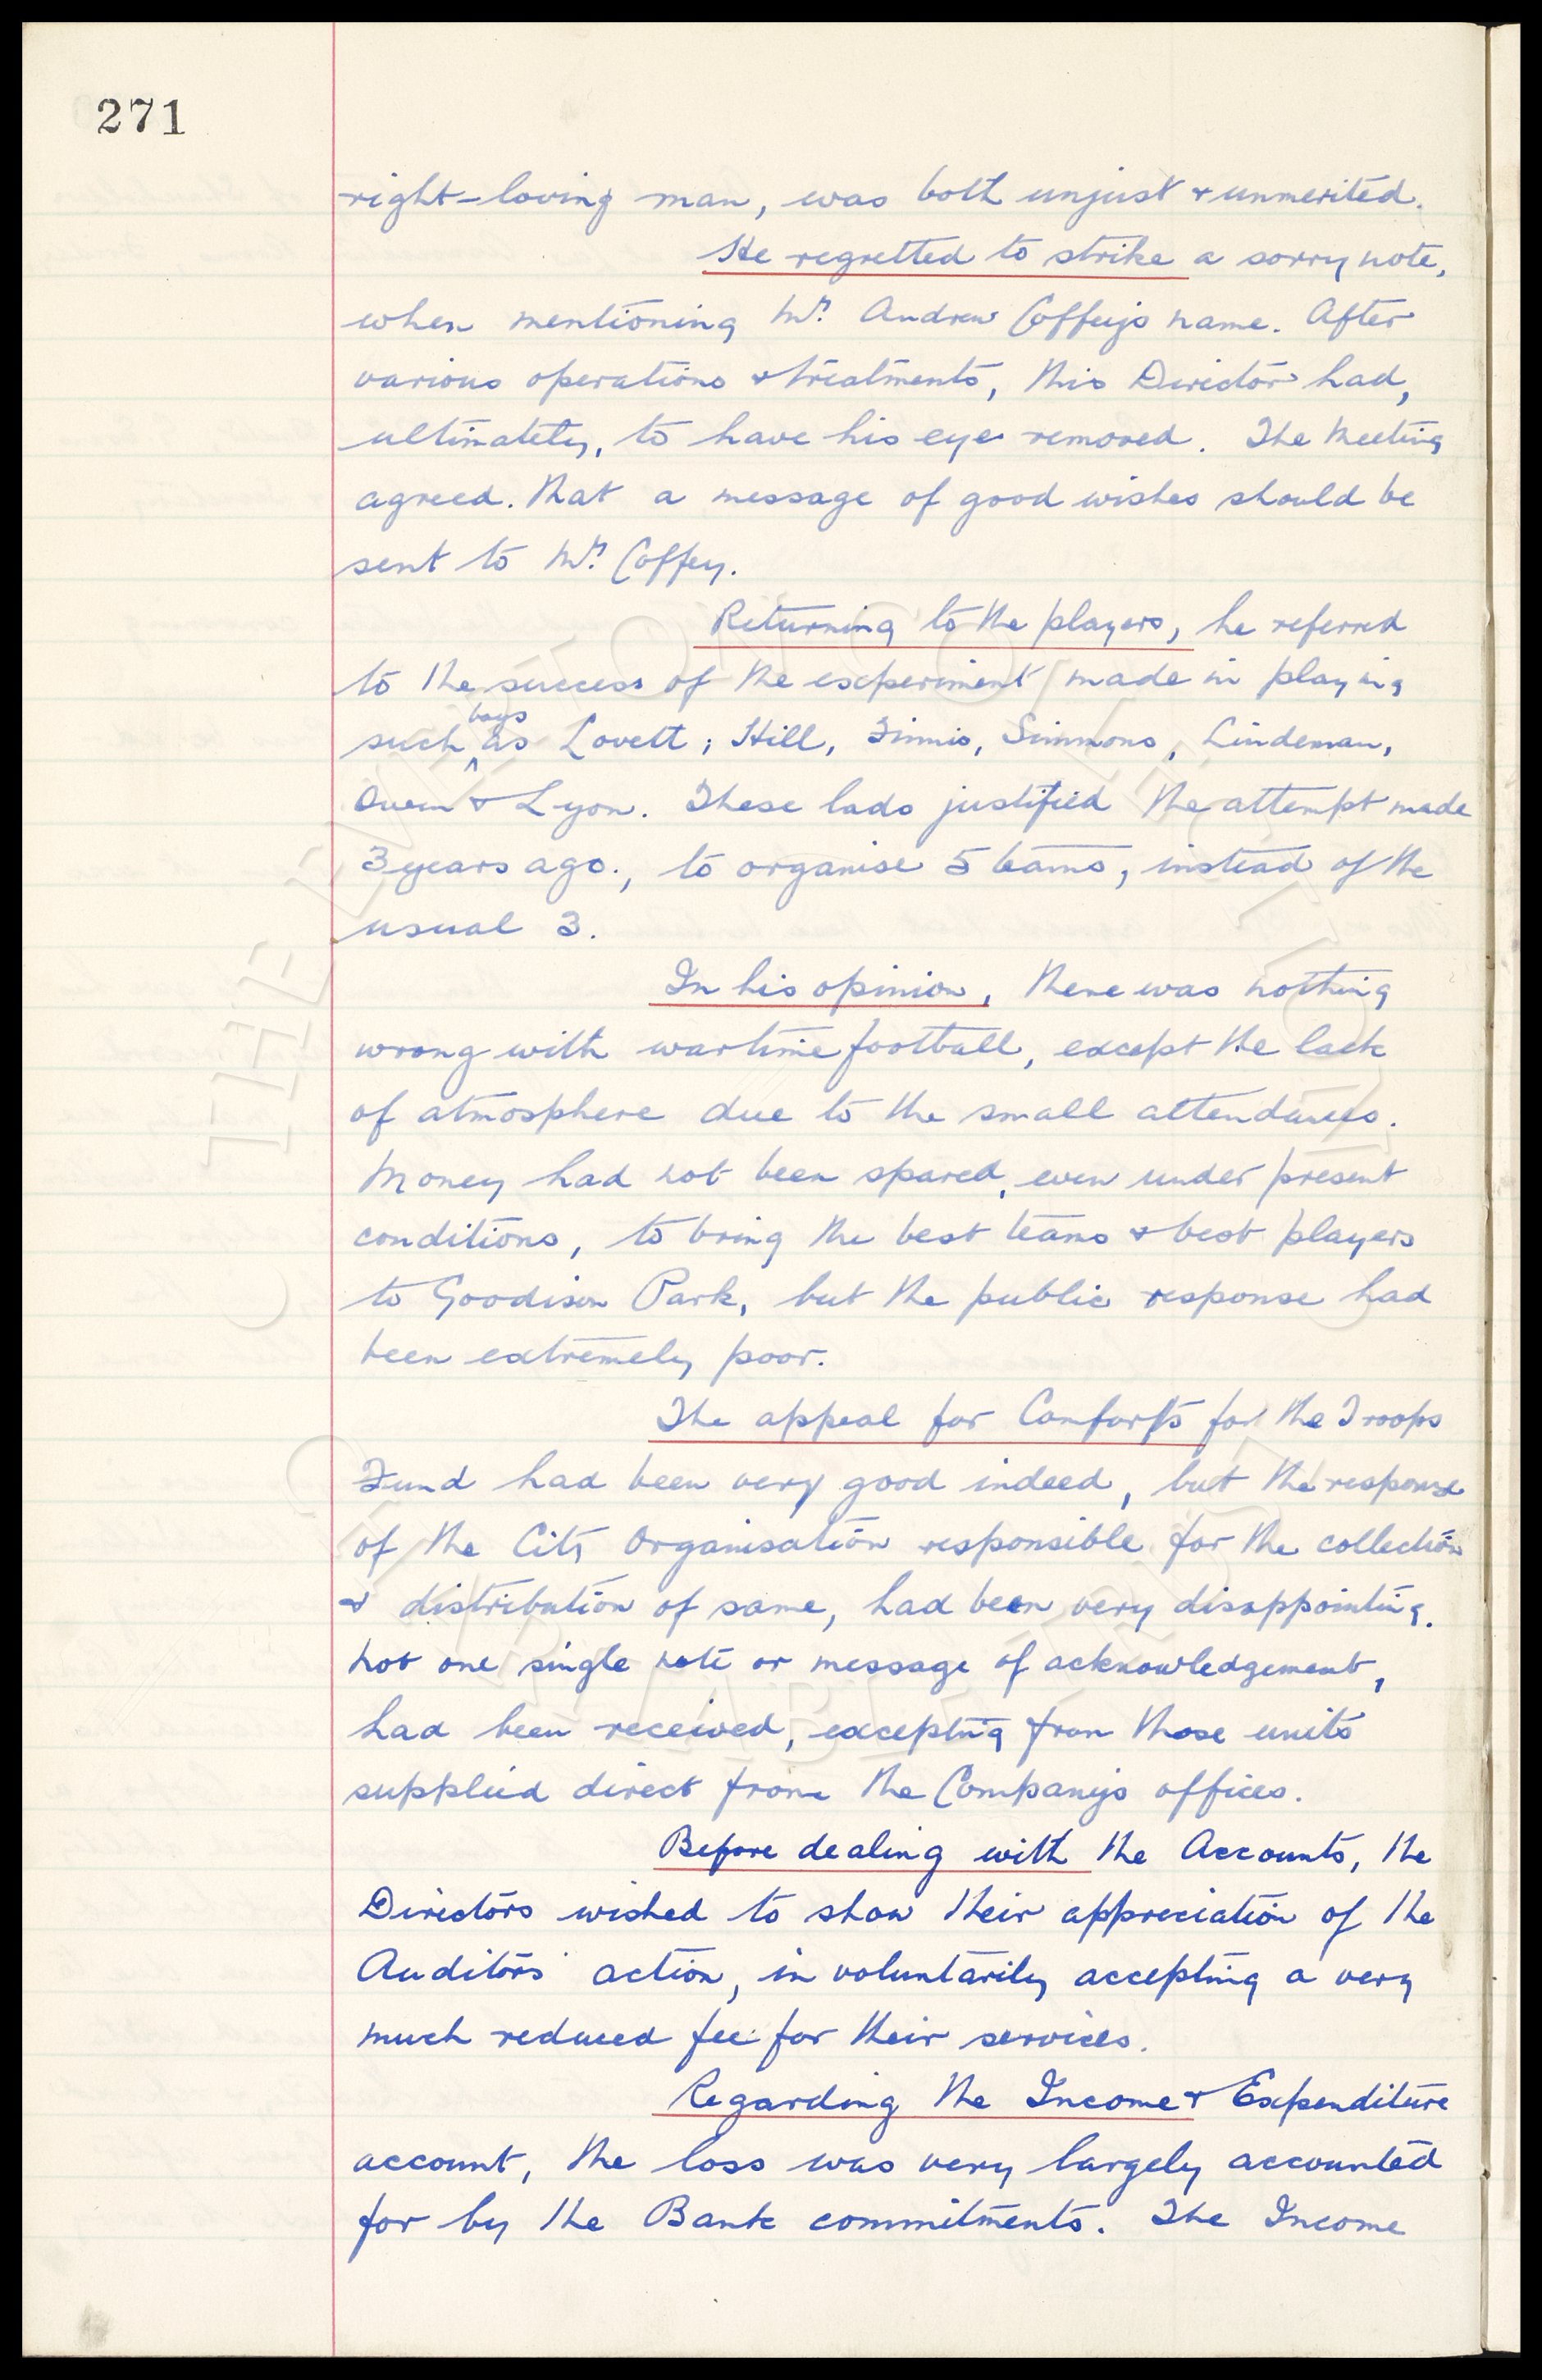 271
right-loving man, was both unjust & unmerited.
He regretted to strike a sorry note,
when mentioning Mr. Andrew Coffey's name. After
various operations & treatments, this Director had,
ultimately, to have his eye removed. The Meeting
agreed. that a message of good wishes should be
sent to Mr. Coffey.
Returning to the players, he referred
to the success of the experiment made in playing
boys
such as Lovett; Hill, Finnis, Simmons, Lindeman,
Owen & Lyon. These lads justified the attempt made
3 years ago., to organise 5 teams, instead of the
usual 3.
In his opinion, there was nothing
wrong with wartime football, except the lack
of atmosphere due to the small attendances.
Money had not been spared, even under present
conditions, to bring the best teams & best players
to Goodison Park, but the public response had
been extremely poor.
The appeal for Comforts for the Troops
Fund had been very good indeed, but the response
of the City Organisation responsible for the collection
& distribution of same, had been very disappointing.
Not one single note or message of acknowledgement,
had been received, excepting from those units
supplied direct from the Company's offices.
Before dealing with the Accounts, the
Directors wished to show their appreciation of the
Auditors' action, in voluntarily accepting a very
much reduced fee for their services.
Regarding the Income & Expenditure
account, the loss was very largely accounted
for by the Bank commitments. The Income